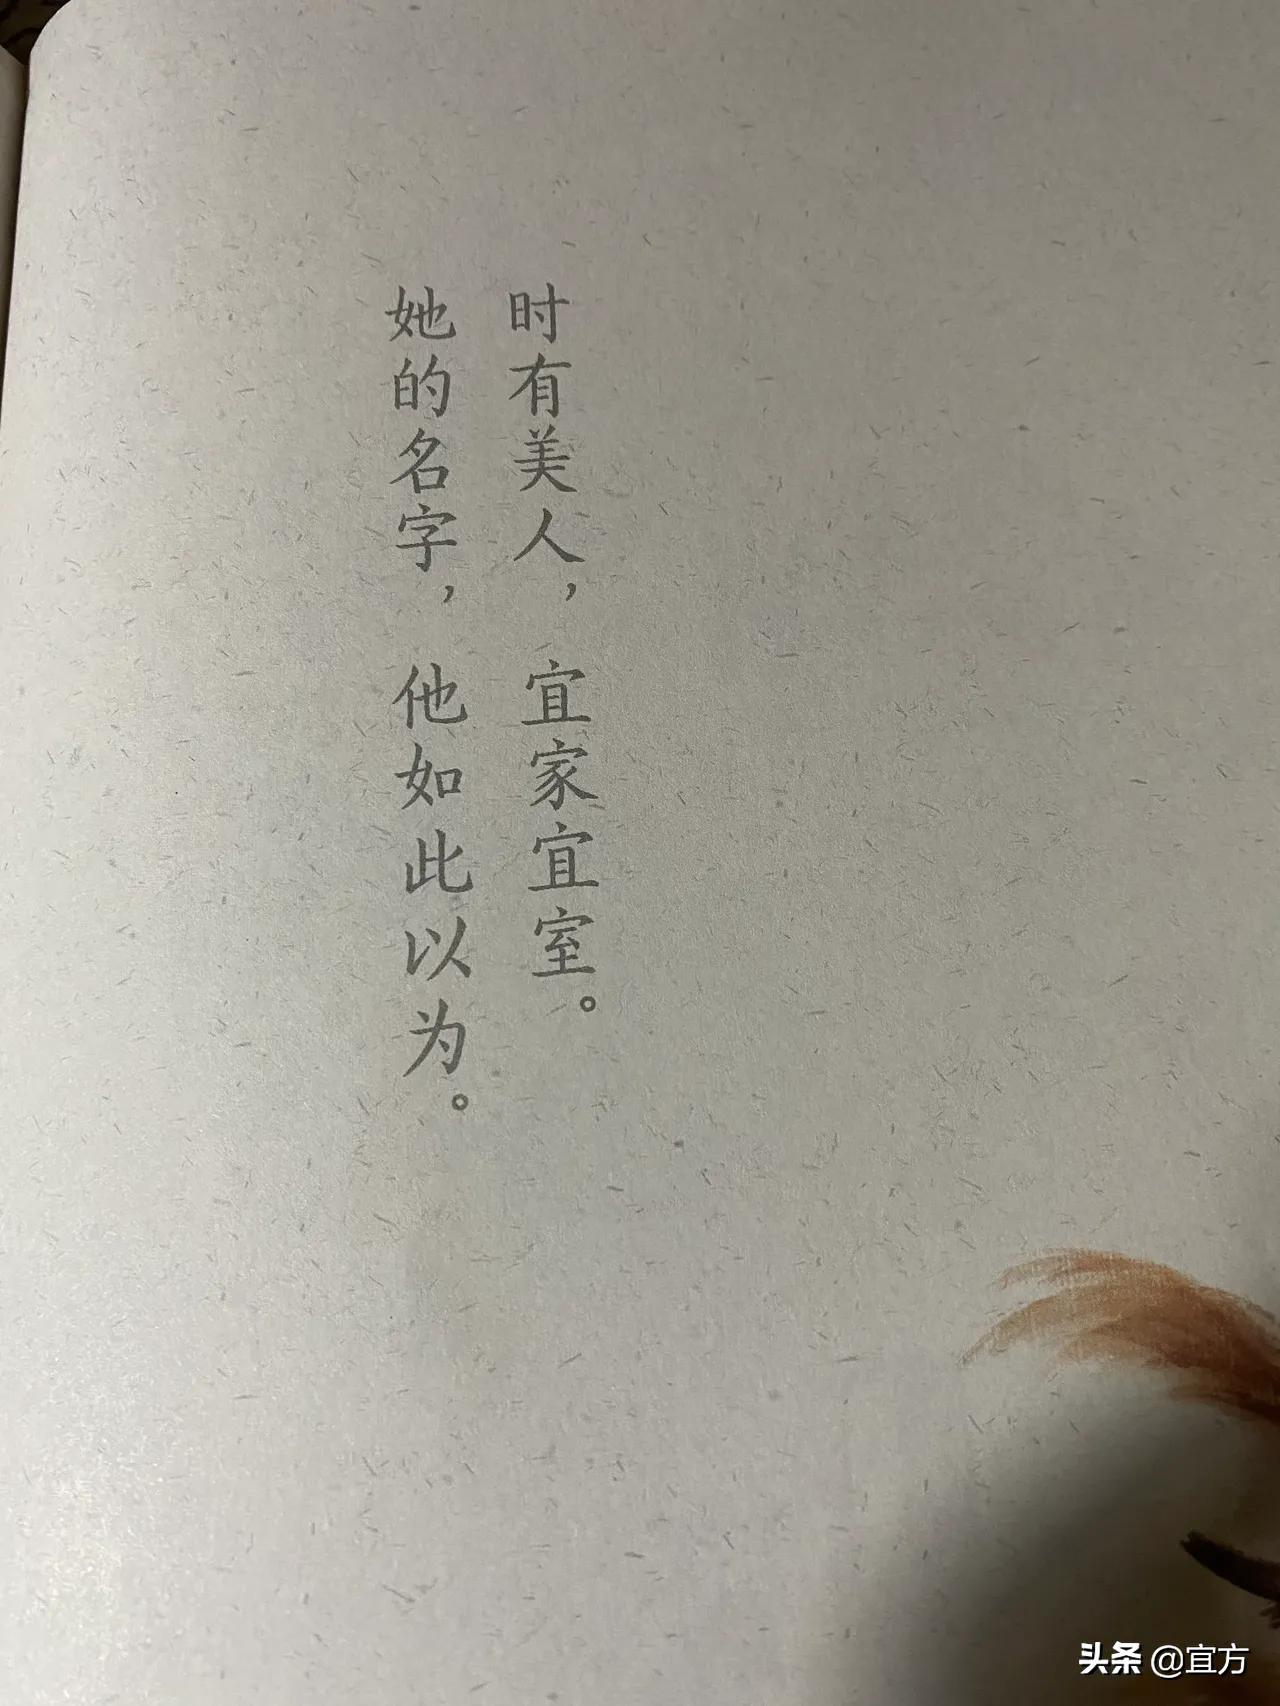 时有美人，宜家宜室。
她的名字，他如此以为。
头条 @宜方